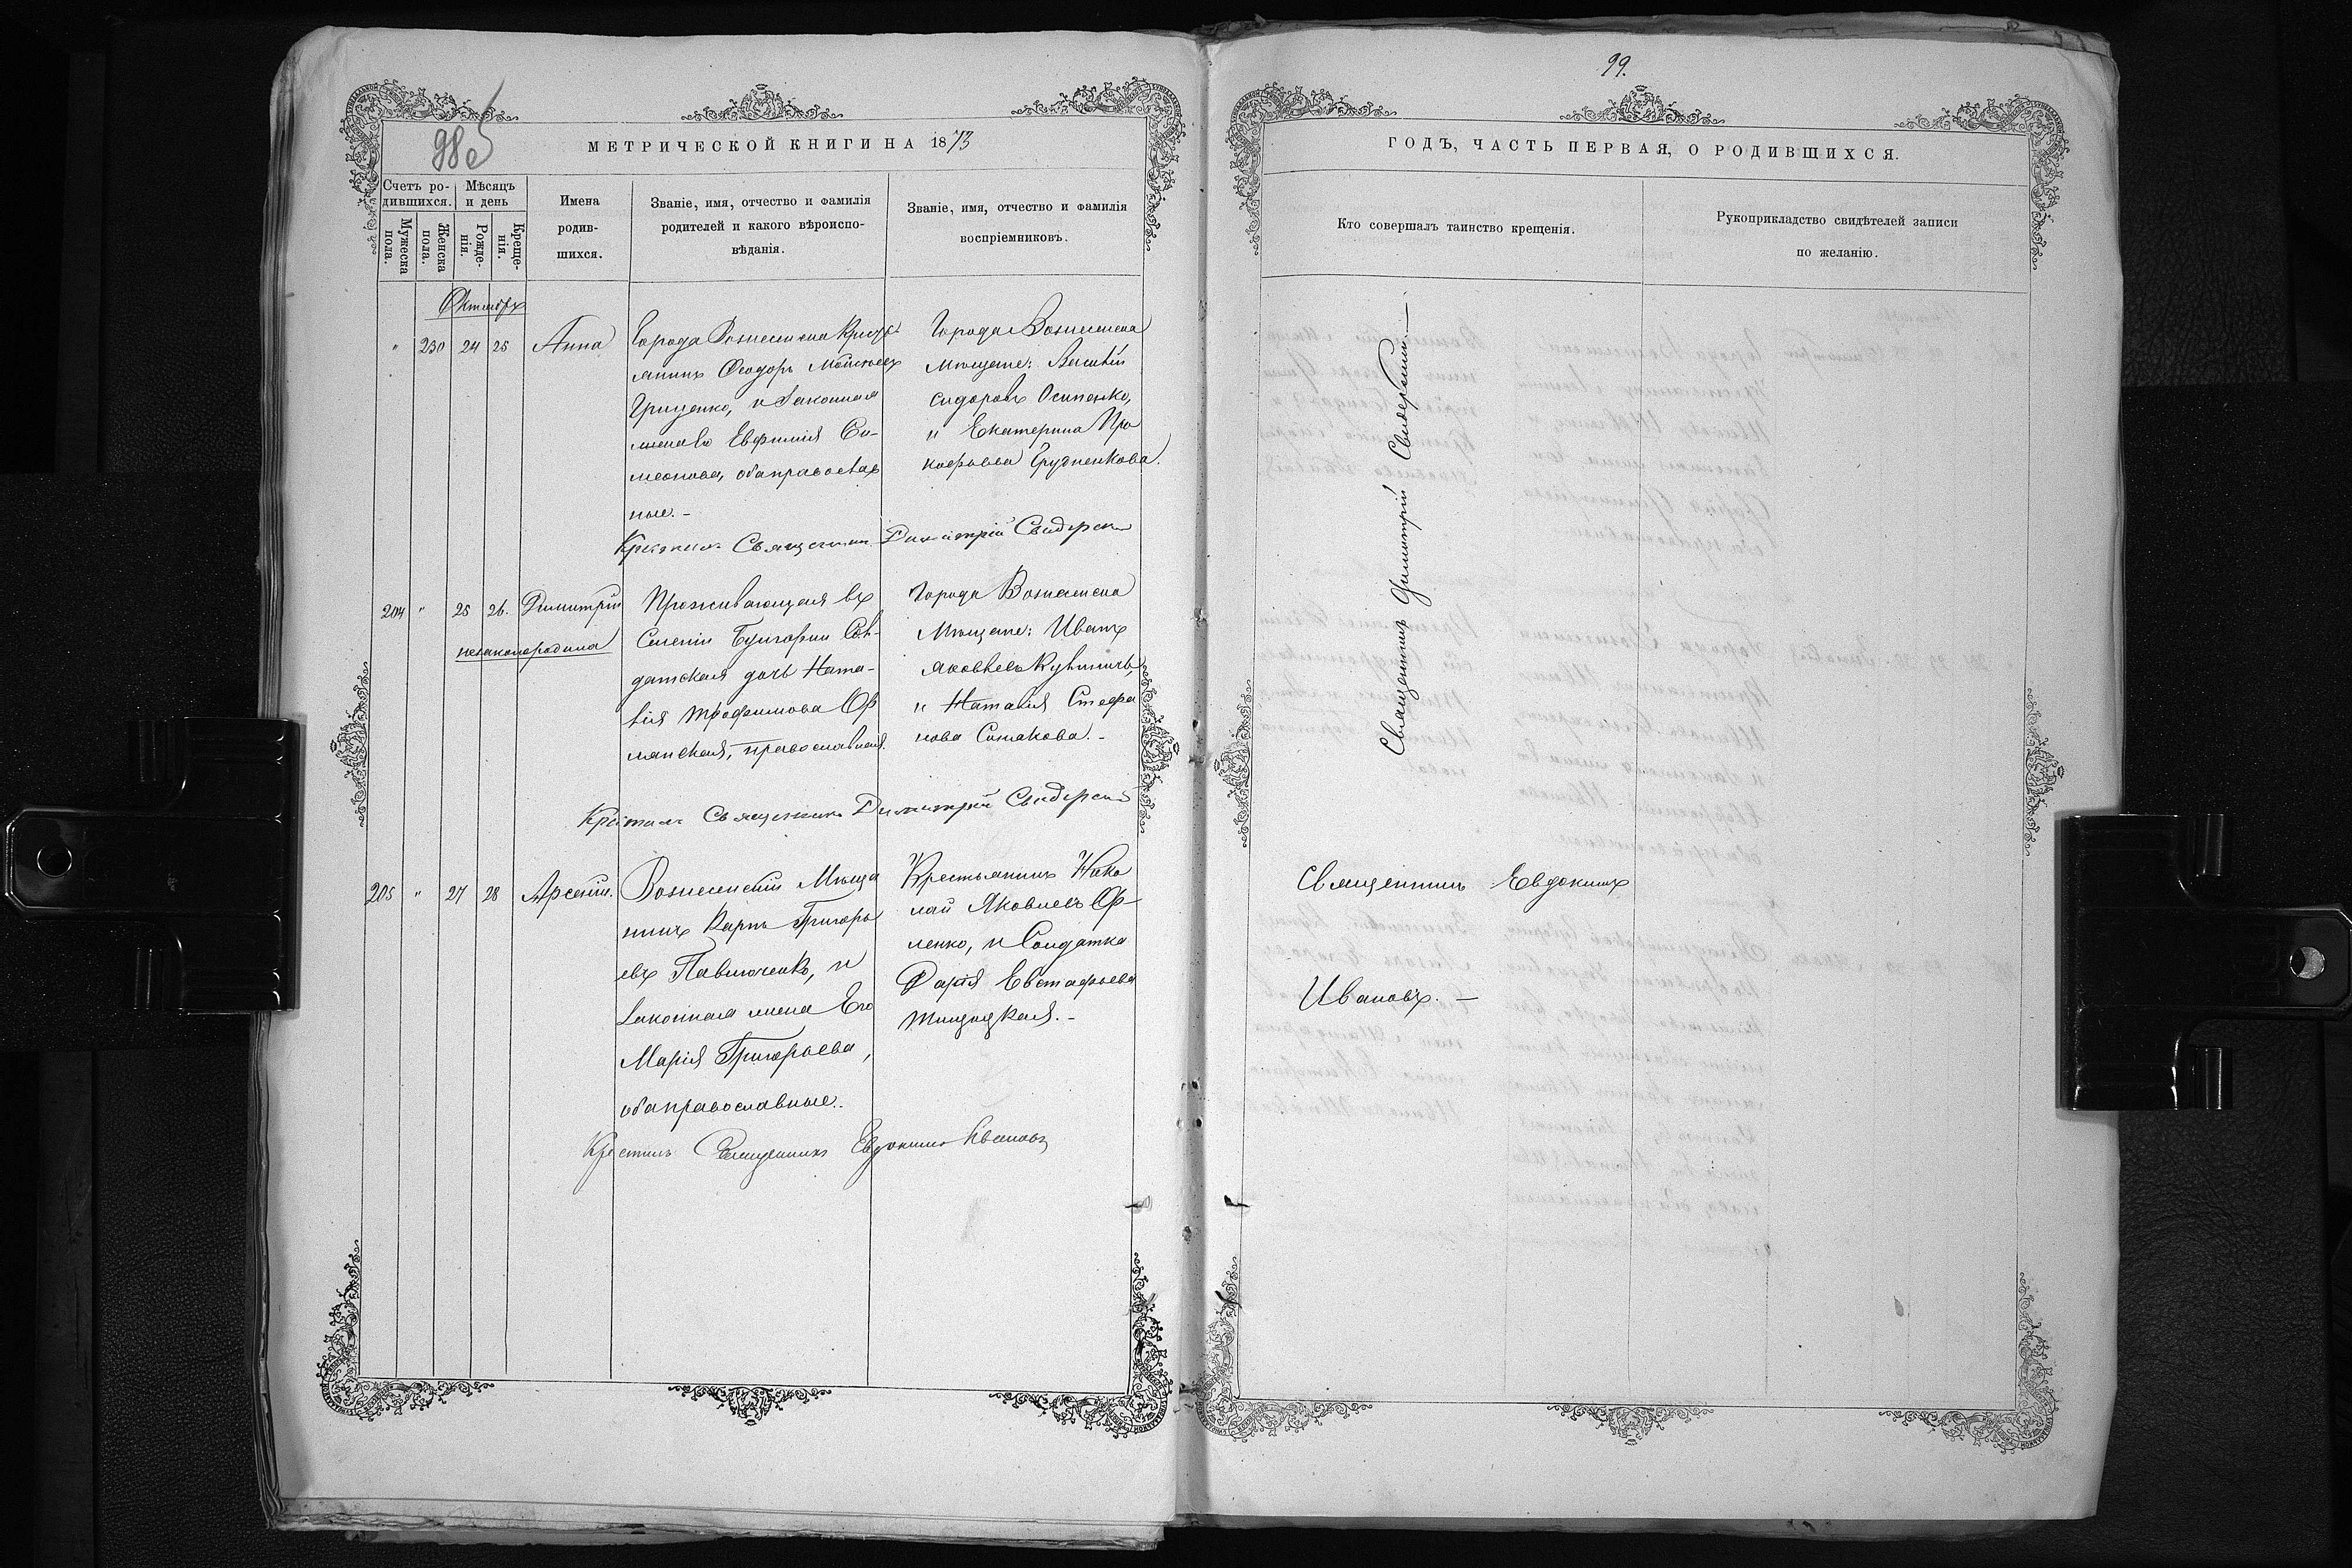 98 об
МЕТРИЧЕСКОЙ КНИГИ НА 1873
Счетъ ро-
дившихся.
Мѣсяцъ
и день
Мужеска
пола.
Женска
пола.
Рожде-
нія.
Креще-
нія.
Имена
родив-
шихся.
Званіе, имя, отчество и фамилія
родителей и какого вѣроиспо-
вѣданія.
Званіе, имя, отчество и фамилія
воспріемниковъ.
Октябрь
" 230 24 25 Анна
Города Вознесенска
Ѳеодоръ
Гриценко, и законная
жена его Евфимія Си-
меонова, оба православ
ные.-
Города Вознесенска
Мѣщане: Василій
Сидоровъ Осипенко,
и Екатерина Про
кофьева Грудненкова.
Крестилъ Священник Димитрій Свидерскій
204 " 25 26. Димитрій
незаконорожден
Проживающая въ
Селеніи Булгарки Сол-
датская дочь Ната-
лія Трофимова Ор
лянская, православная.
Города Вознесенска
Мѣщане: Иванъ
Яковлевъ
и Наталія Стефа
нова Синякова.-
Крестилъ Священникъ Димитрій Свидерскій
205 " 27 28 Арсеній.
Вознесенскій Мѣща
нинъ Карпъ Григорь
евъ Павлюченко, и
Законная жена Его
Марія Григорьева,
оба православные..
Крестьянинъ Нико
лай Яковлевъ Ор-
ленко, и Солдатка
Дарія Евстафьева
Крестилъ Священникъ Евдокимъ Ивановъ
99.
ГОДЪ, ЧАСТЬ ПЕРВАЯ, О РОДИВШИХСЯ.
Кто совершалъ таинство крещенія.
Рукоприкладство свидѣтелей записи
по желанію.
Священникъ Димитрій Свидерскій.—
Священникъ Евдокимъ
Ивановъ.—